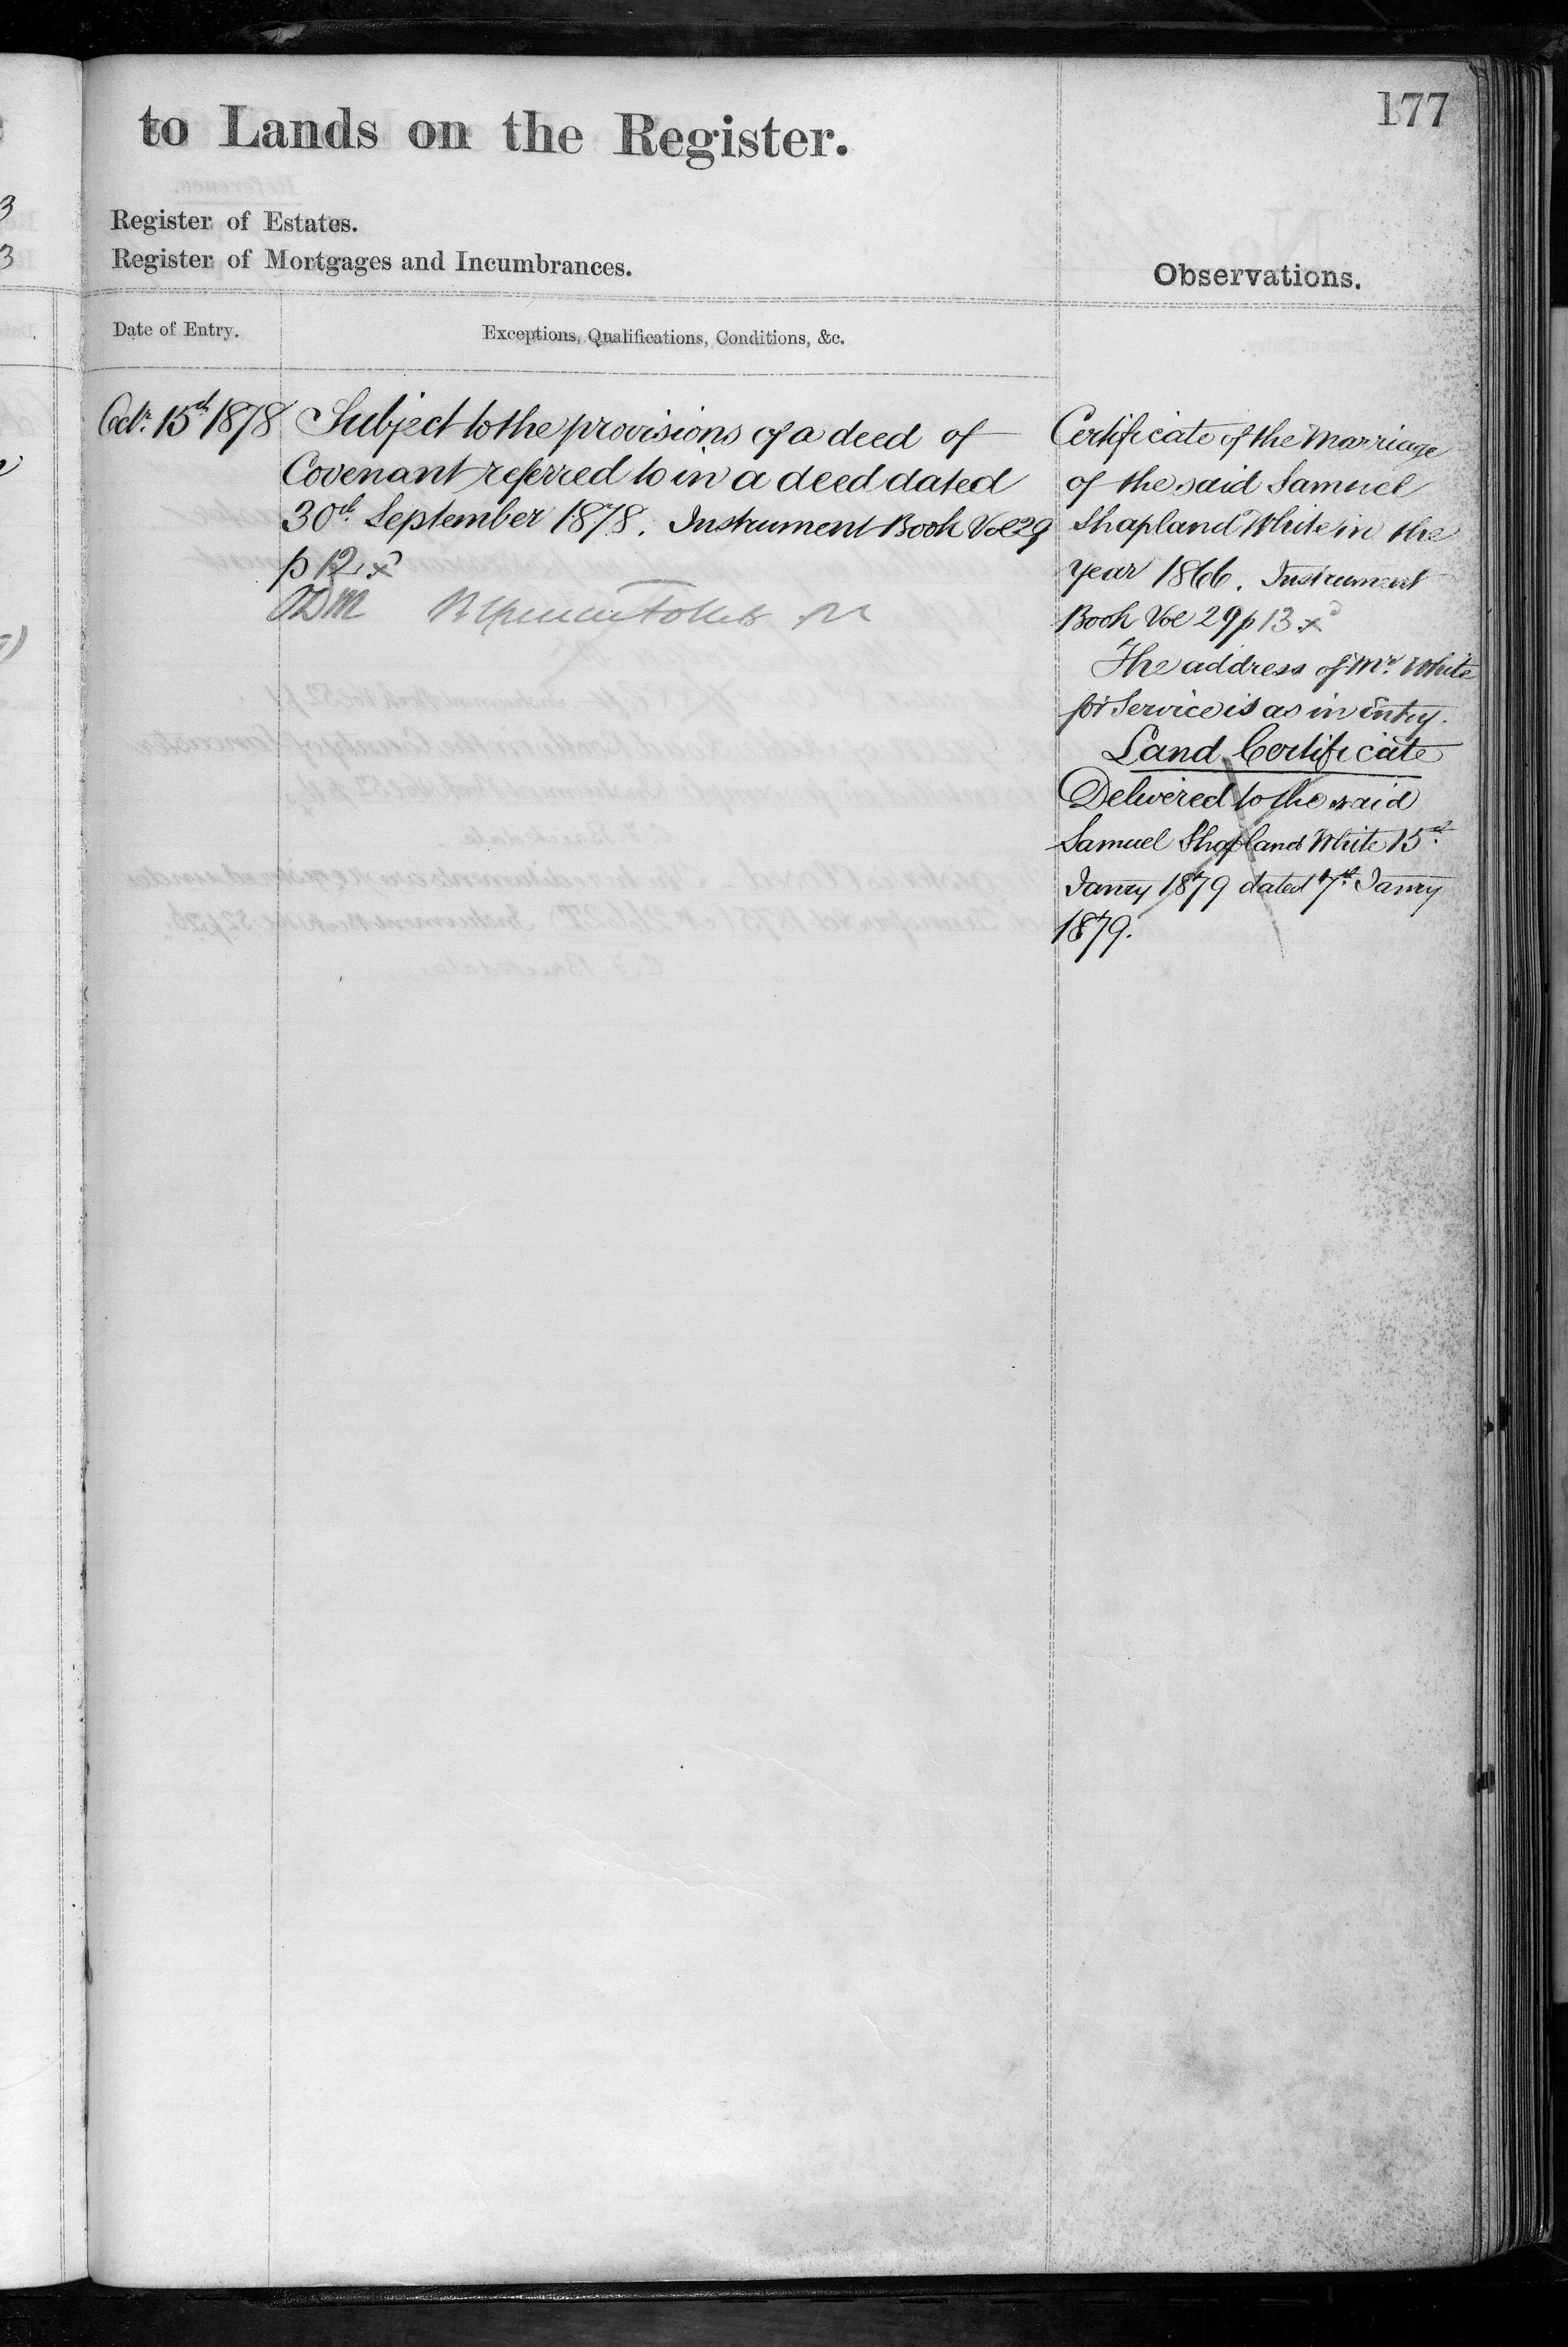 177
to Lands on the Register.
Register of Estates.
Register of Mortgages and Incumbrances.
Observations.
Date of Entry.
Exceptions, Qualifications, Conditions, &c.
Octr. 15th 1878
Subject to the provisions of a deed of
Covenant referred to in a deed dated
30th September 1878. Instrument Book Vol 29
p 12 x
Certificate of the Marriage
of the said Samuel
Shapland White in the
year 1866. Instrument
Book Vol 29 p 13 x
The address of Mr. White
for Service is as in Entry.
Land Certificate
Delivered to the said
Samuel Shapland White 15th
Janry 1879 dated 7th Janry
1879.